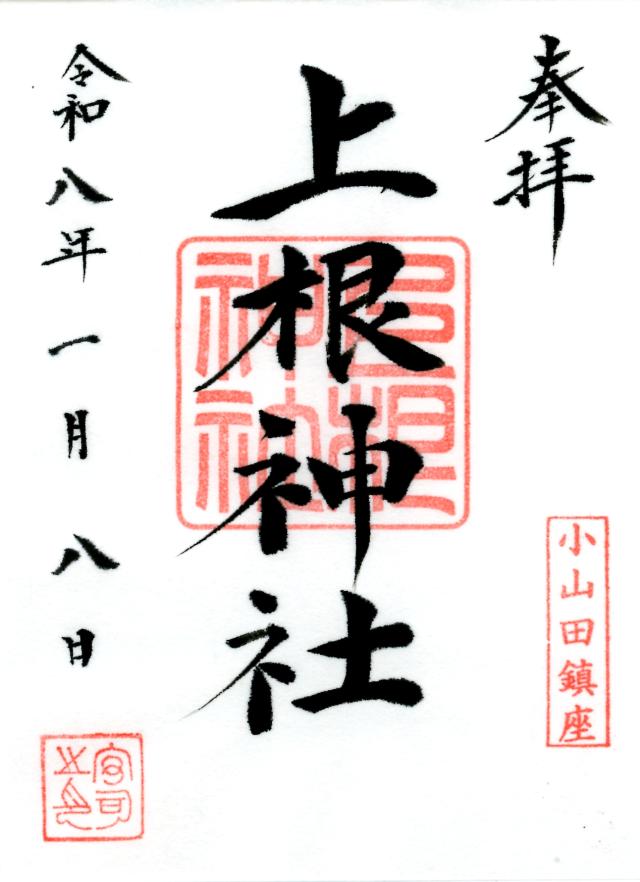 奉拝
小山田鎮座
上根神社
上根神社
令和八年一月八日
宮司之印